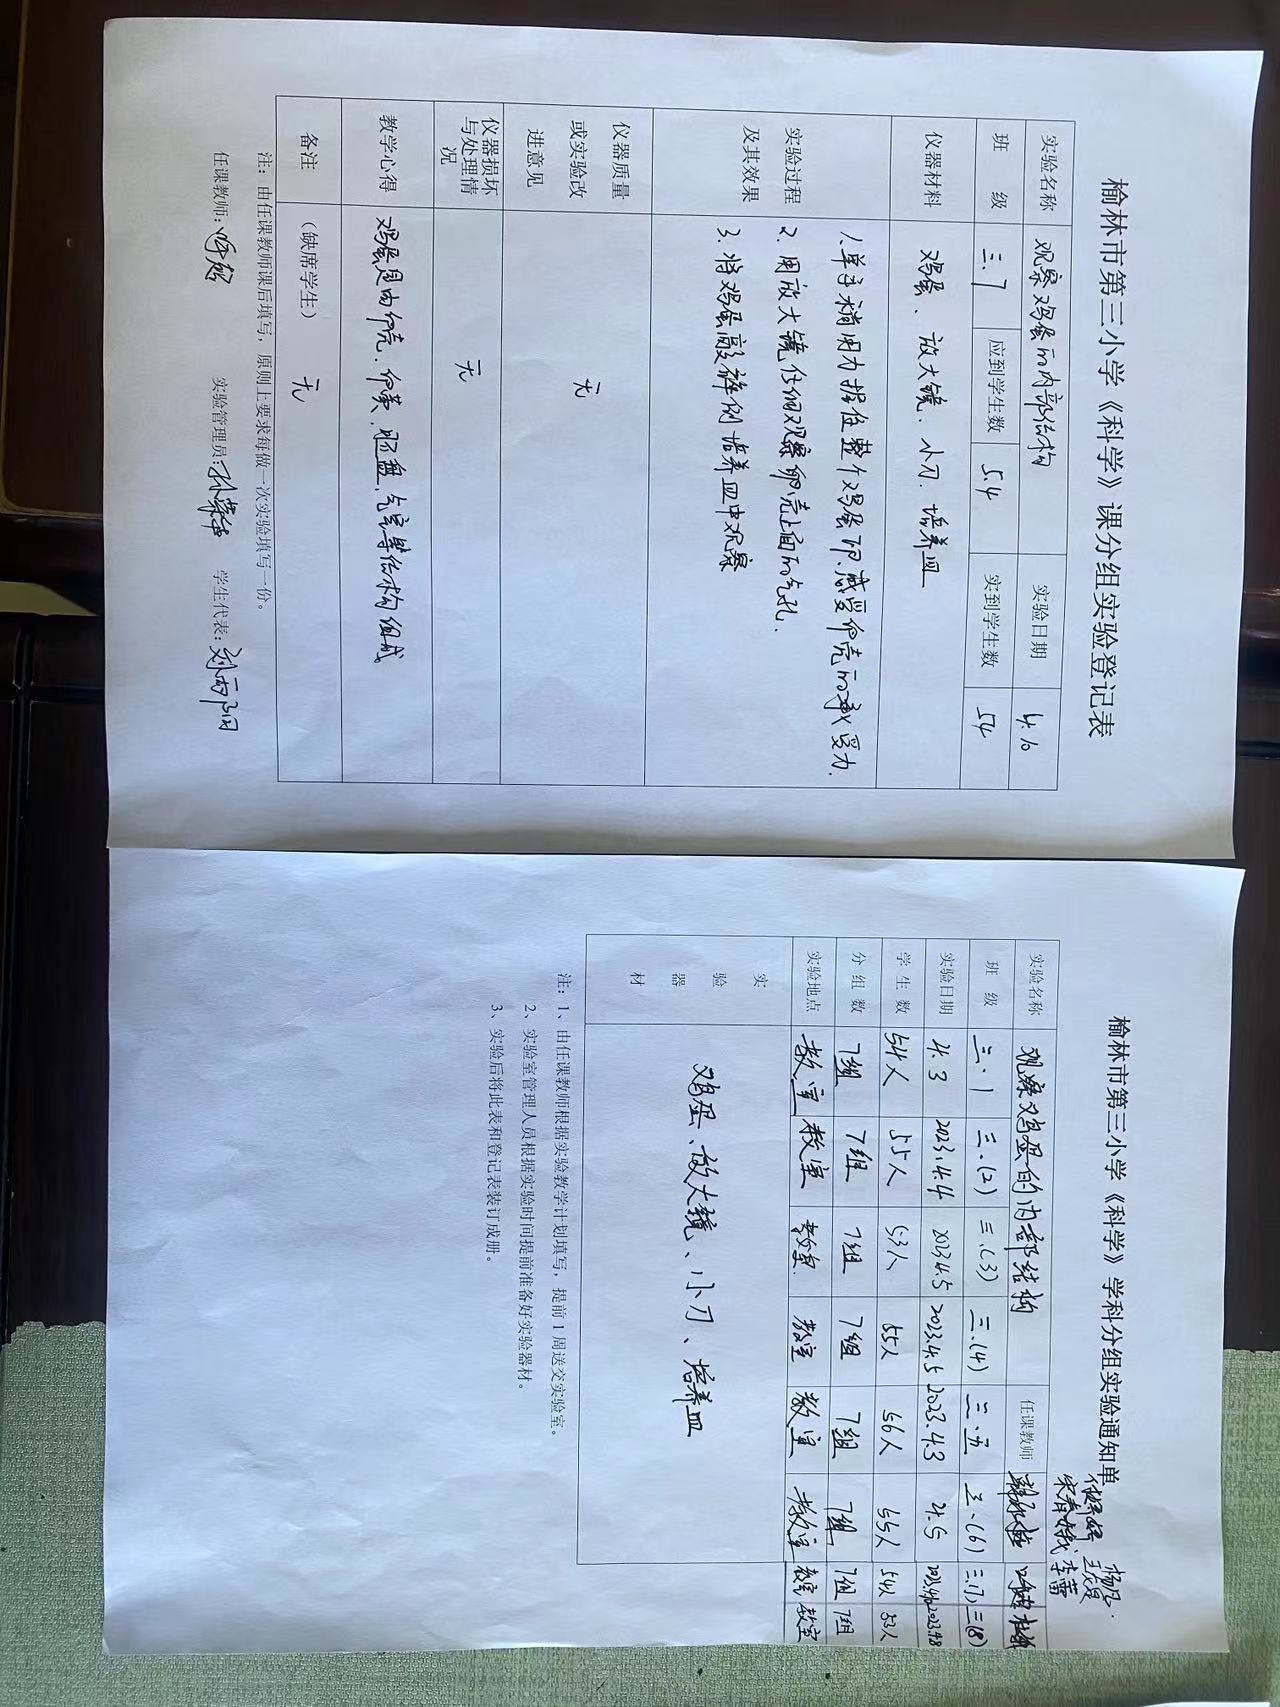 榆林市第三小学《科学》课分组实验登记表
实验名称 观察鸡蛋的内部结构 实验日期 4.10
班 级 三.7 应到学生数 54 实到学生数 54
仪器材料 鸡蛋、放大镜、小刀、培养皿
实验过程及其效果
1.单手稍用力握住整个鸡蛋 感受 壳的承受力.
2.用放大镜仔细观察卵壳上面的气孔.
3.将鸡蛋敲碎倒培养皿中观察
仪器质量或实验改进意见 无
仪器损坏与处理情况 无
教学心得 鸡蛋是由卵壳、卵黄、胚盘、气室等结构组成
备注 (缺席学生) 无
注:由任课教师课后填写,原则上要求每做一次实验填写一份。
任课教师: 实验管理员: 学生代表:
榆林市第三小学《科学》学科分组实验通知单
实验名称 观察鸡蛋的内部结构 任课教师
班 级 三.1 三.(2) 三.(3) 三.(4) 三.五 三.(6) 三.(7) 三(8)
实验日期 4.3 2023.4.4 2023.4.5 2023.4.5 2023.4.3 4.5
学生数 54人 55人 53人 55人 56人 55人 54人 53人
分组数 7组 7组 7组 7组 7组 7组 7组 7组
实验地点 教室 教室 教室 教室 教室 教室 教室 教室
实验器材 鸡蛋、放大镜、小刀、培养皿
注:1、由任课教师根据实验教学计划填写,提前1周送交实验室。
2、实验室管理人员根据实验时间提前准备好实验器材。
3、实验后将此表和登记表装订成册。